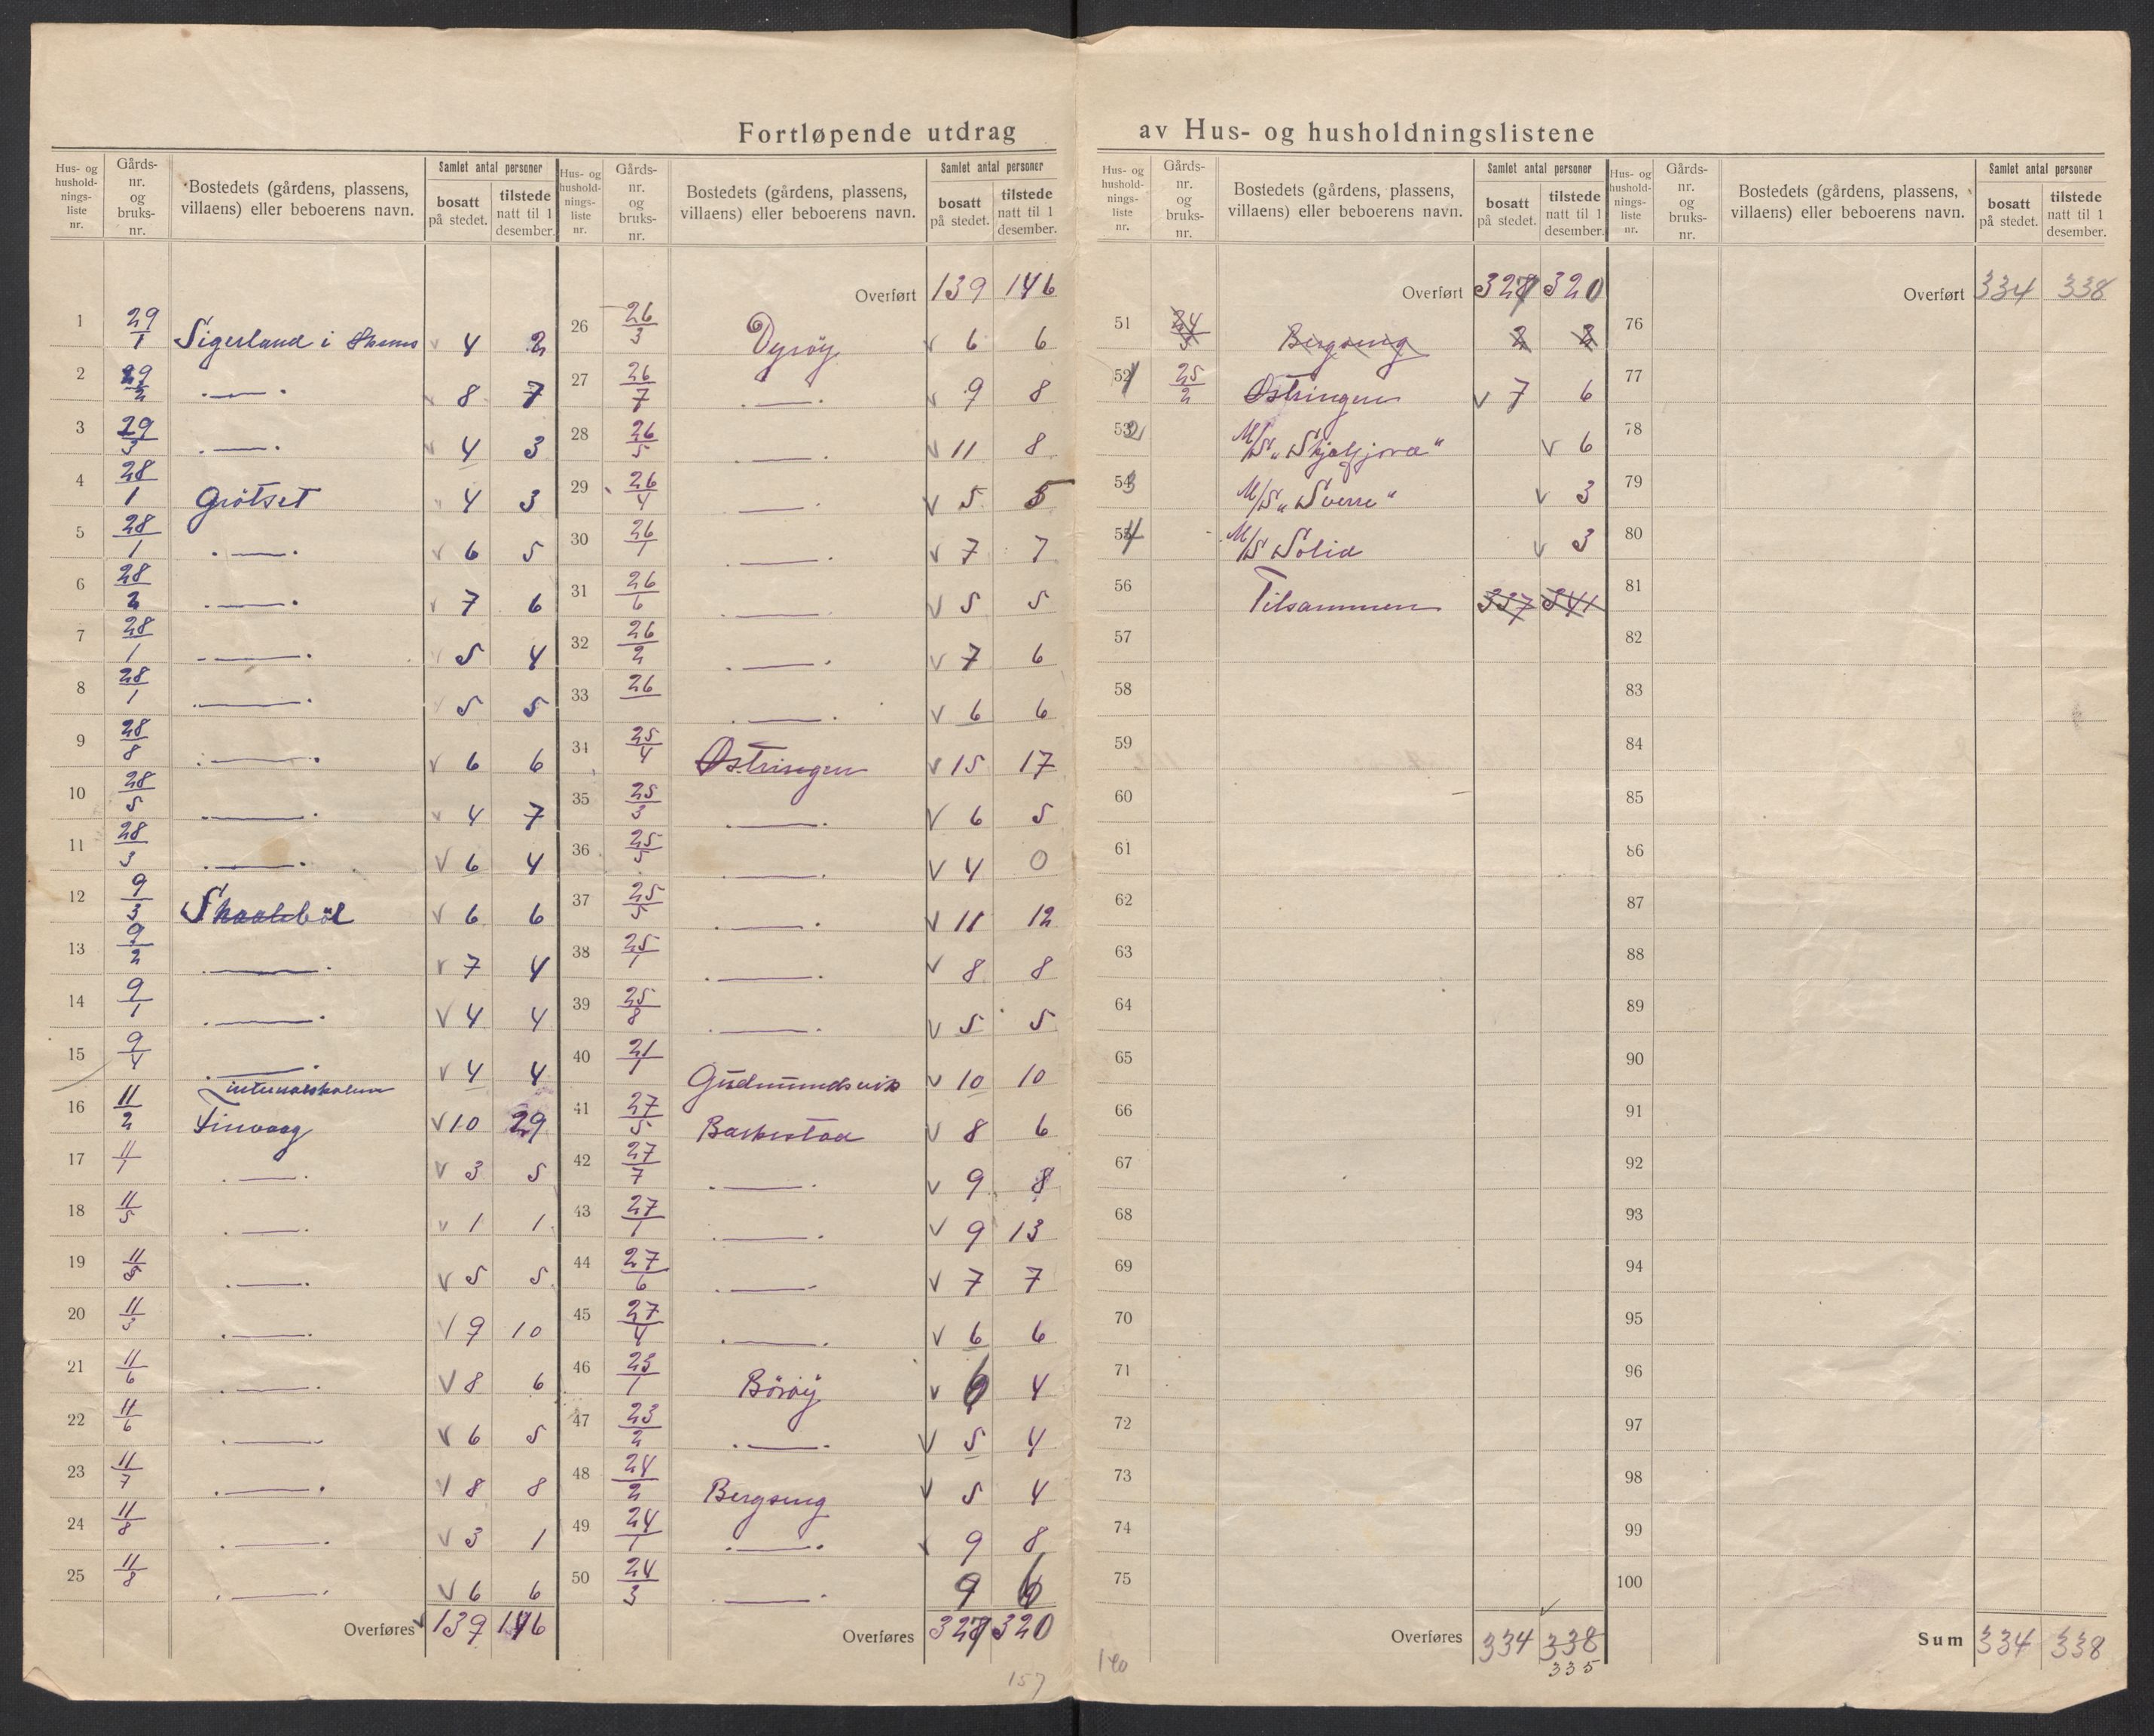 Fortløpende utdrag av Hus- og husholdningslistene
Hus- og hushold-nings-liste nr. | Gårds-nr. og bruks-nr. | Bostedets (gårdens, plassens, villaens) eller beboerens navn. | Samlet antal personer | bosatt på stedet. | tilstede natt til 1 desember.
1 29/1 Sigerland i 4 2
2 29/2 —"— 8 7
3 29/3 —"— 4 3
4 28/1 Grötset 4 3
5 28/1 —"— 6 5
6 28/2 —"— 7 6
7 28/1 —"— 5 4
8 28/1 —"— 5 5
9 28/8 —"— 6 6
10 28/5 —"— 4 7
11 28/3 —"— 6 4
12 9/3 Skaaleböl 6 6
13 9/2 —"— 7 4
14 9/1 —"— 4 4
15 9/4 —"— 4 4
16 11/2 Finvaag 10 29
17 11/1 —"— 3 5
18 11/5 —"— 1 1
19 11/9 —"— 5 5
20 11/3 —"— 9 10
21 11/6 —"— 8 6
22 11/6 —"— 6 5
23 11/7 —"— 8 8
24 11/8 —"— 3 1
25 11/8 —"— 6 6
Overføres 139 146
Hus- og hushold-nings-liste nr. | Gårds-nr. og bruks-nr. | Bostedets (gårdens, plassens, villaens) eller beboerens navn. | Samlet antal personer | bosatt på stedet. | tilstede natt til 1 desember.
Overført 139 146
26 26/3 Dyröy 6 6
27 26/7 —"— 9 8
28 26/5 —"— 11 8
29 26/4 —"— 5 5
30 26/1 —"— 7 7
31 26/6 —"— 5 5
32 26/2 —"— 7 6
33 26 —"— 6 6
34 25/4 Østringen 15 17
35 25/3 —"— 6 5
36 25/5 —"— 4 0
37 25/5 —"— 11 12
38 25/1 —"— 8 8
39 25/8 —"— 5 5
40 21/1 Gudmundsvik 10 10
41 27/5 Barkestad 8 6
42 27/7 —"— 9 8
43 27/1 —"— 9 13
44 27/6 —"— 7 7
45 27/4 —"— 6 6
46 23/1 Böröy 6 4
47 23/2 —"— 5 4
48 24/2 Bergseng 5 4
49 24/1 —"— 9 8
50 24/3 —"— 9 6
Overføres 327 320
157
Hus- og hushold-nings-liste nr. | Gårds-nr. og bruks-nr. | Bostedets (gårdens, plassens, villaens) eller beboerens navn. | Samlet antal personer | bosatt på stedet. | tilstede natt til 1 desember.
Overført 327 320
51 24/3 Bergseng 2 2
52 1 25/2 Østringen 7 6
53 2 M/S "Skjelfjord" 6
54 3 M/S "Sverre" 3
55 4 M/S Solid 3
56 Tilsammen 337 341
57
58
59
60
61
62
63
64
65
66
67
68
69
70
71
72
73
74
75
Overføres 334 338
335
140
Hus- og hushold-nings-liste nr. | Gårds-nr. og bruks-nr. | Bostedets (gårdens, plassens, villaens) eller beboerens navn. | Samlet antal personer | bosatt på stedet. | tilstede natt til 1 desember.
Overført 334 338
76
77
78
79
80
81
82
83
84
85
86
87
88
89
90
91
92
93
94
95
96
97
98
99
100
Sum 334 338